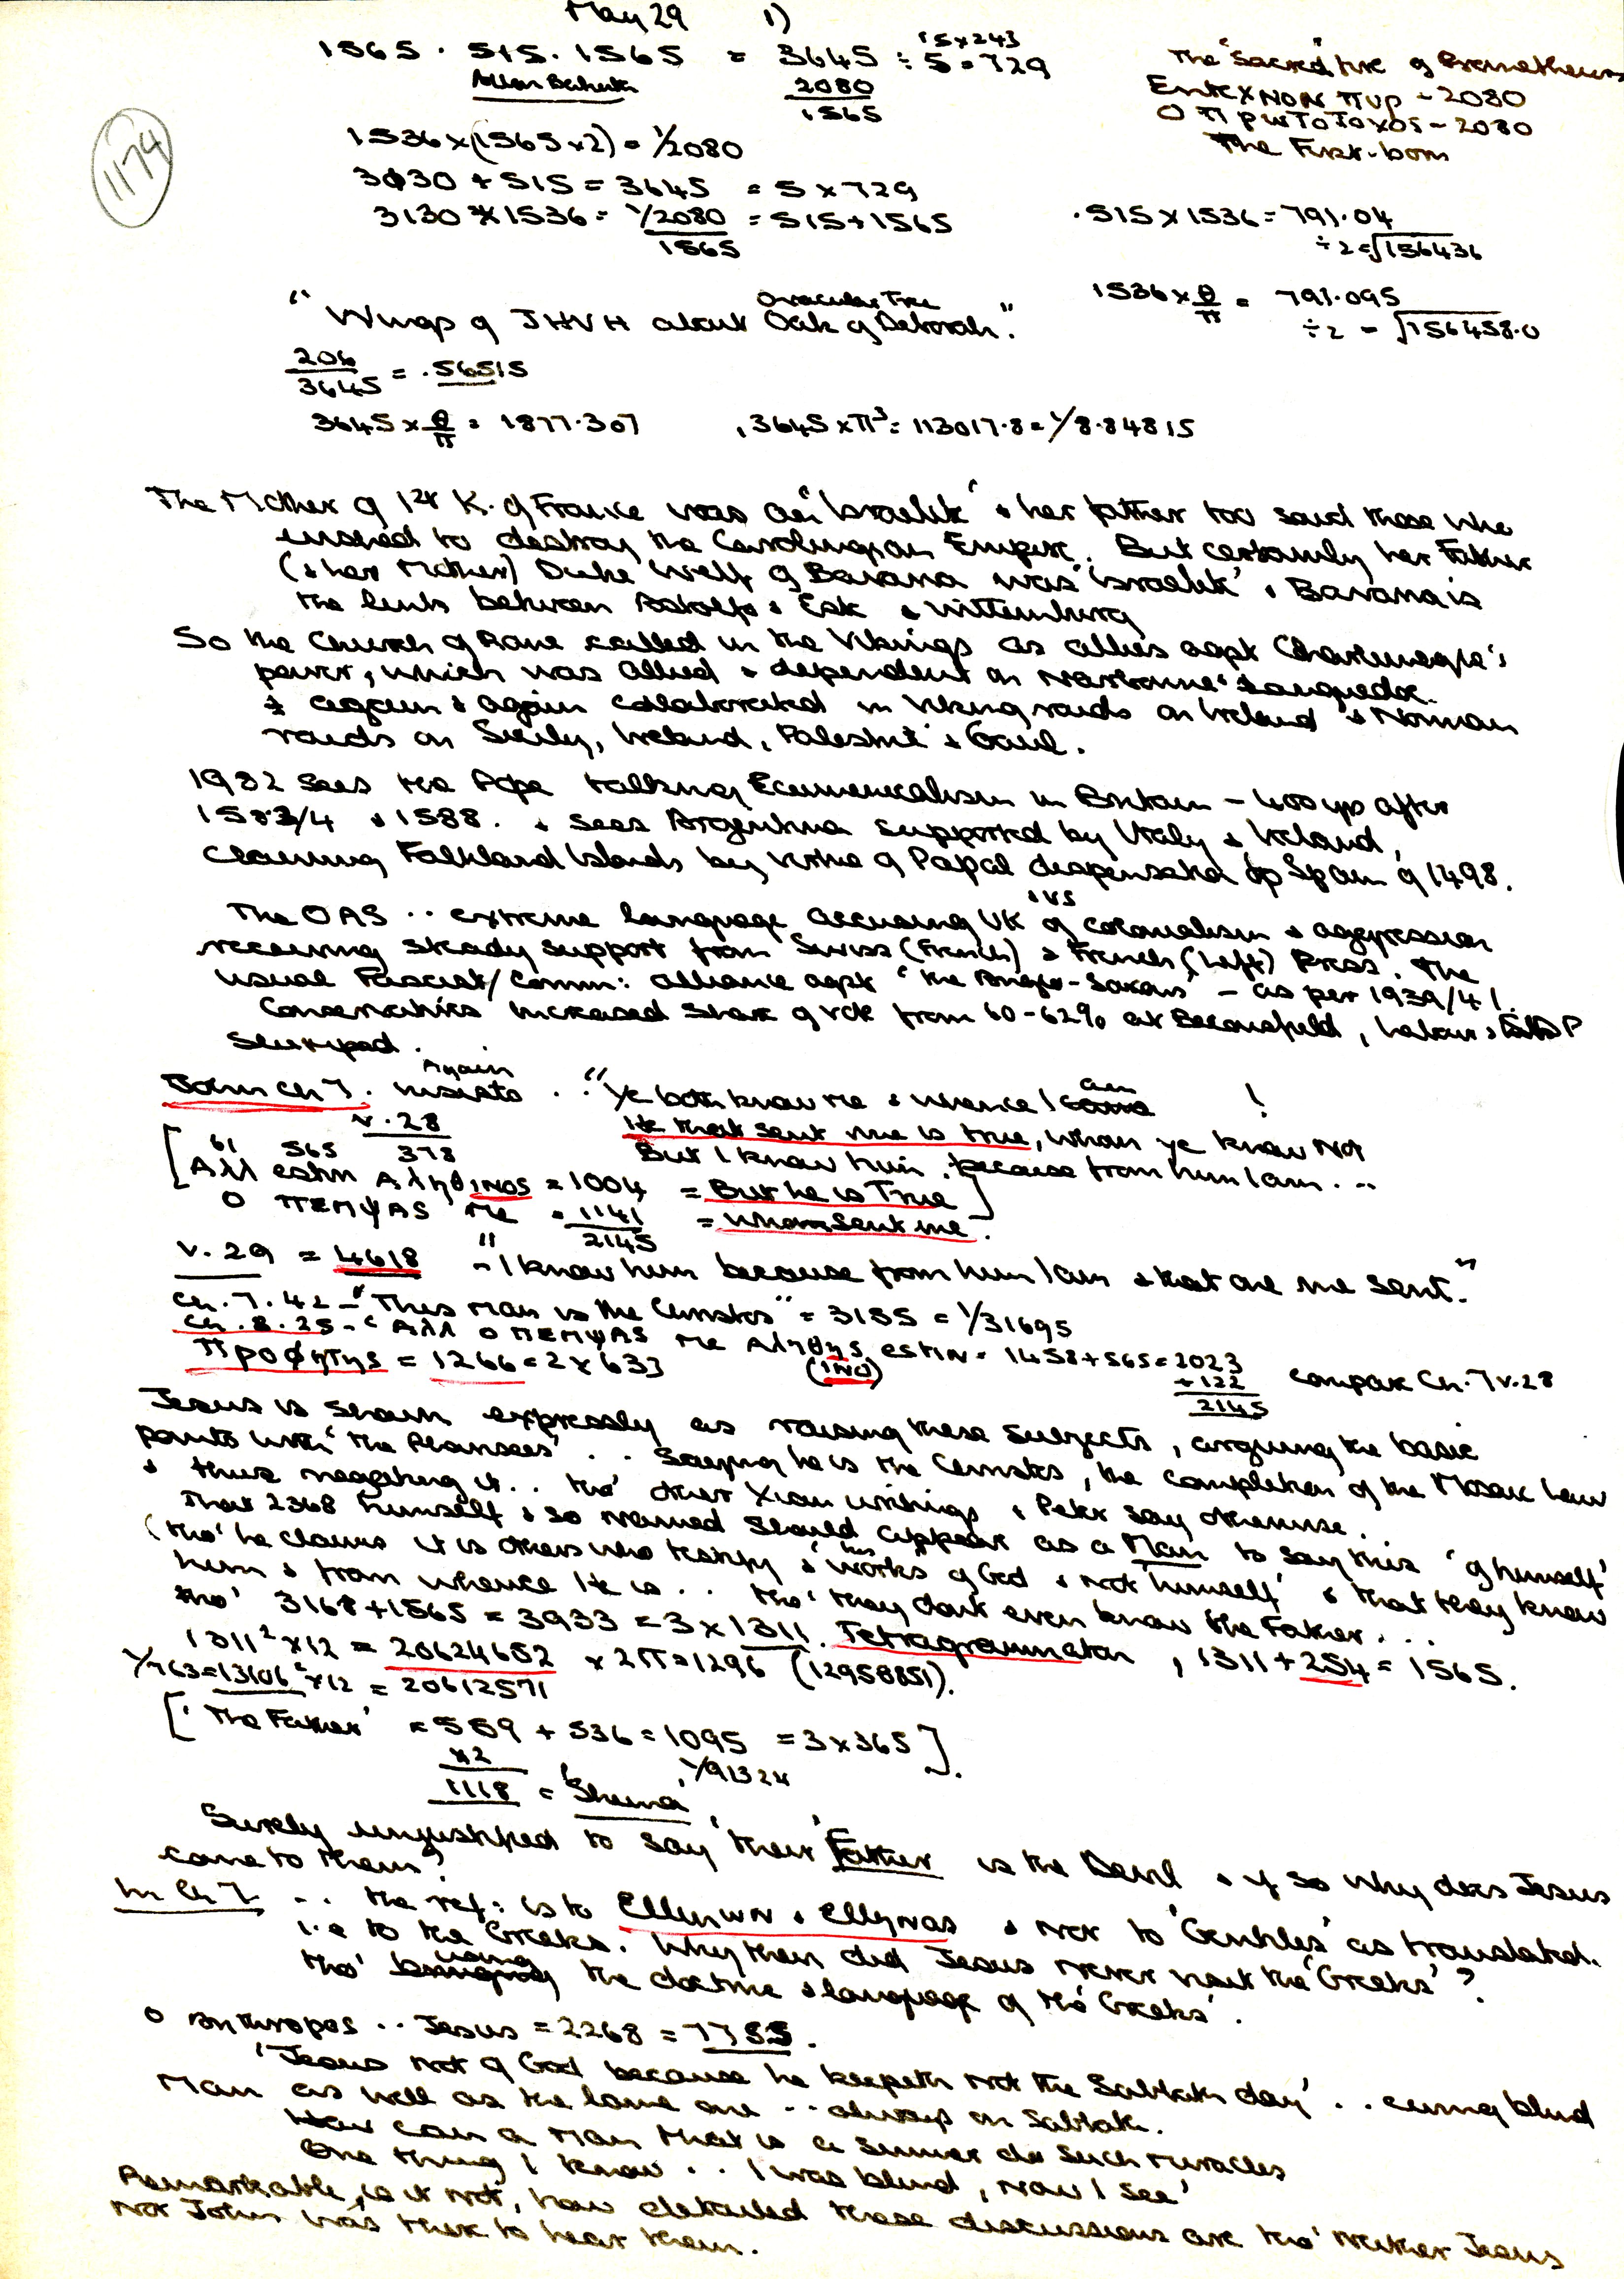 May 29 1)
1565 . 515 . 1565 = 3645 ÷ 5 = 729
15x243
2080
1565
The 'Sacred' fire of Prometheus
Entexnon πup - 2080
O πpwToToxos - 2080
The First-born
1174
1536 x (1565 x 2) = 1/2080
3030 + 515 = 3645 = 5 x 729
3130 x 1536 = 1/2080 = 515 + 1565
1565
.515 x 1536 = 791.04
÷ 2 = √156436
1536 x θ/π = 791.095
÷ 2 = √156458.0
Oracular Tree
"Wings of JHVH about Oak of Deborah".
206/3645 = .56515
3645 x θ/π = 1877.307 , 3645 x π³ = 113017.8 = 1/8.84815
The Mother of 1st K. of France was an 'Israelite' & her father too said those who
wished to destroy the Carolingian Empire. But certainly her Father
(& her Mother) Duke Welf of Bavaria was 'Israelite' & Bavaria is
the link between Astolfo & Este & Wittenburg
So the Church of Rome called in the Vikings as allies agst Charlemagne's
power, which was allied & dependent on Narbonne & Languedoc.
& again & again collaborated in Viking raids on Ireland & Norman
raids on Sicily, Ireland, Palestine & Gaul.
1982 sees the Pope talking Ecumenicalism in Britain - 400 yrs after
1583/4 & 1588. & sees Argentina supported by Italy & Ireland,
claiming Falkland Islands by virtue of Papal dispensation to Spain of 1498.
The OAS .. extreme language accusing UK & US of colonialism & aggression
receiving steady support from Swiss (French) & French (Left) Press. The
usual Fascist/Comm: alliance agst 'the Anglo-Saxons' - as per 1939/41.
Conservatives increased share of vote from 60-62% at Beaconsfield, Labour & SDP
slumped.
John Ch 7. Again insists .. "Ye both know me & whence I am !
v. 28 He that sent me is true, whom ye know not
61 565 378 But I know him, because from him I am ...
[Aλλ estin Aληθinos = 1004 = But he is True]
O πEMψAS Me = 1141 = Whom sent me.
2145
v. 29 = 4618 " - I know him because from him I am & that one me sent."
Ch. 7. 42 - "This Man is the Christos" = 3155 = 1/31695
Ch. 8. 25 - 'Aλλ o πEMψAS Me Aληθηs estin = 1458 + 565 = 2023
(ino) + 122 Compare Ch. 7 v. 28
2145
πpoφητηs = 1266 = 2 x 633
Jesus is shown expressly as raising these subjects, arguing the basic
points with 'the Pharisees' .. Saying he is the Christos, the completion of the Mosaic Law
& thus negating it .. tho' other Xian writings & Peter say otherwise.
That 2368 himself & so named should appear as a Man to say this 'of himself'
(tho' he claims it is others who testify & his 'works' of God & not 'himself' & that they know
him & from whence He is .. tho' they dont even know the Father ...
tho' 3168 + 1565 = 3933 = 3 x 1311. Tetragrammaton, 1311 + 254 = 1565.
1311² x 12 = 20624652 x 2π = 1296 (12958851).
1/763 = 13106² x 12 = 20612571
['The Father' = 559 + 536 = 1095 = 3 x 365].
x2 1/91324
1118 = 'Shema'
Surely unjustified to say 'their' Father is the Devil & if so why does Jesus
come to them?
In Ch 7 .. the ref: is to Ellynwn & Ellynas & not to 'Gentiles' as translated.
i.e to the Greeks. Why then did Jesus never visit the 'Greeks'?
tho' using the doctrine & language of the 'Greeks'.
O Anthropos .. Jesus = 2268 = 7755.
'Jesus not of God because he keepeth not the Sabbath day' .. curing blind
man as well as the lame one .. always on Sabbath.
How can a man that is a sinner do such miracles
One thing I know .. I was blind, now I see'
Remarkable, is it not, how detailed these discussions are tho' neither Jesus
nor John was there to hear them.